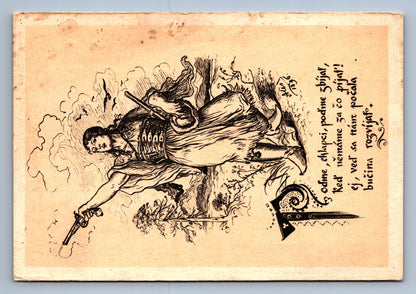 Poďme, chlapci, poďme zbíjať,
keď nemáme za čo píjať!
ej, veď sa nám počala
bučina rozvíjať.